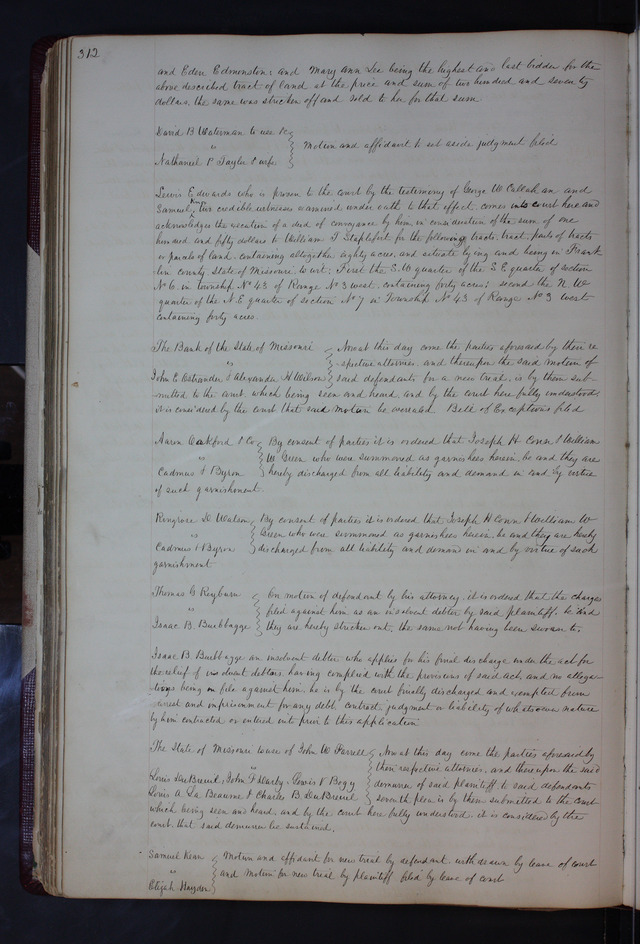 312
and Eden Edmonston: and Mary Ann Lee being the highest and last bidder for the
above described tract of land at the price and sum of two hundred and seventy
dollars. the same was stricken off and sold to her for that sum
David B Waterman to use &c
"
Nathaniel P. Taylor & wife
Motion and affidavit to set aside judgment filed
Lewis Edwards who is proven to the court by the testimony of George W Callahan and
Samuel two credible witnesses examined under oath to that effect, comes into court here and
acknowledges the execution of a deed of conveyance by him in consideration of the sum of one
hundred and fifty dollars to William T Staplefort for the following tracts. tract, parts of tracts
or parcels of land. containing altogether eighty acres, and situate lying and being in Frank
lin county State of Missouri. to wit; First the S.W quarter of the S.E quarter of section
No 6. in township No 43 of Range No 3 west. containing forty acres; second the N. W
quarter of the N.E quarter of section No 7 in Township No 43 of Range No 3 west
containing forty acres
The Bank of the State of Missouri
"
John E Ostrander & Alexander H Wilson
Now at this day come the parties aforesaid by their re
spective attornies. and thereupon the said motion of
said defendants for a new trial, is by them sub-
mitted to the court. which being seen and heard, and by the court here fully understood.
it is considered by the court that said motion be overruled Bill of Exceptions filed
Aaron Oakford & Co
"
Cadmus & Byron
By consent of parties it is ordered that Joseph H. Conn & William
W Green who were summoned as garnishees herein, be and they are
hereby discharged from all liability and demand in and by virtue
of such garnishment.
D Watson
"
Cadmus & Byron
By consent of parties it is ordered that Joseph H Conn & William W
Green who were summoned as garnishees herein, be and they are hereby
discharged from all liability and demand in and by virtue of such
garnishment
Thomas G Rayburn
"
Isaac B. Burbbayge
On motion of defendant by his attorney. it is ordered that the charges
filed against him as an insolvent debtor by said plaintiff, be and
they are hereby stricken out, the same not having been sworn to.
Isaac B. Burbbayge an insolvent debtor who applies for his final discharge under the act for
the relief of insolvent debtors, having complied with the provisions of said act, and no allega-
tions being on file against him, he is by the court finally discharged and exempted from
arrest and imprisonment for any debt, contract judgment or liability of whatsoever nature
by him contracted or entered into prior to this application
The State of Missouri to use of John W Farrell
"
Louis DuBreuil, John F Hearty, Lewis V Bogy
Louis A La Beaume & Charles B. DuBreuil
Now at this day come the parties aforesaid by
their respective attornies. and thereupon the said
demurrer of said plaintiff to said defendants
seventh plea is by them submitted to the court
which being seen and heard, and by the court here fully understood. it is considered by the
court. that said demurrer be sustained.
Samuel Kean
"
Elijah Hayden
Motion and affidavit for new trial by defendant withdrawn by leave of court
and motion for new trial by plaintiff filed by leave of court